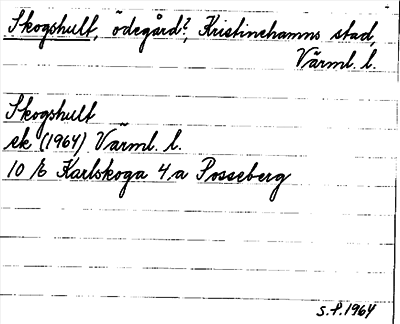 Skogshult, ödegård?, Kristinehamns stad,
Värml. l.
Skogshult
ek (1964) Värml. l.
10 E Karlskoga 4 a Posseberg
S.P. 1964